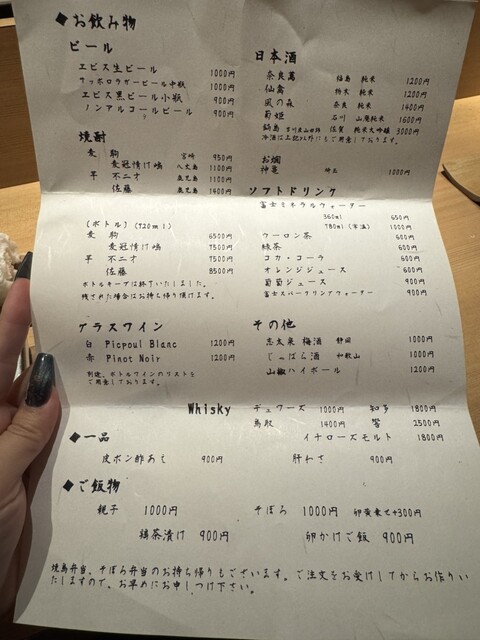 ◆お飲み物
ビール
エビス生ビール 1000円
サッポロラガービール中瓶 1000円
エビス黒ビール小瓶 900円
ノンアルコールビール 900円
焼酎
麦 駒 宮崎 950円
麦冠情け嶋 八丈島 1100円
芋 不二才 鹿児島 1100円
佐藤 鹿児島 1400円
(ボトル)(720ml)
麦 駒 6500円
麦冠情け嶋 7500円
芋 不二才 7500円
佐藤 8500円
ボトルキープは終了いたしました。
残された場合はお持ち帰り頂けます。
グラスワイン
白 Picpoul Blanc 1200円
赤 Pinot Noir 1200円
別途、ボトルワインのリストを
ご用意しております。
日本酒
奈良萬 福島 純米 1200円
仙禽 栃木 純米 1200円
風の森 奈良 純米 1400円
菊姫 石川 山廃純米 1600円
鍋島 佐賀 純米大吟醸 3000円
冷酒は上記以外にもご用意しております。
お燗
神亀 埼玉 1000円
ソフトドリンク
富士ミネラルウォーター
360ml 650円
780ml (常温) 1000円
ウーロン茶 600円
緑茶 600円
コカ・コーラ 600円
オレンジジュース 600円
葡萄ジュース 900円
富士スパークリングウォーター 900円
その他
志太泉 梅酒 静岡 1000円
じゃばら酒 和歌山 1000円
山椒ハイボール 1200円
Whisky デュワーズ 1000円 知多 1800円
鳥取 1400円 響 2500円
イチローズモルト 1800円
◆一品
皮ポン酢あえ 900円 肝わさ 900円
◆ご飯物
親子 1000円 そぼろ 1000円 卵黄乗せ+300円
鶏茶漬け 900円 卵かけご飯 900円
焼鳥弁当、そぼろ弁当のお持ち帰りもございます。ご注文をお受けしてからお作りい
たしますので、お早めにお申しつけ下さい。